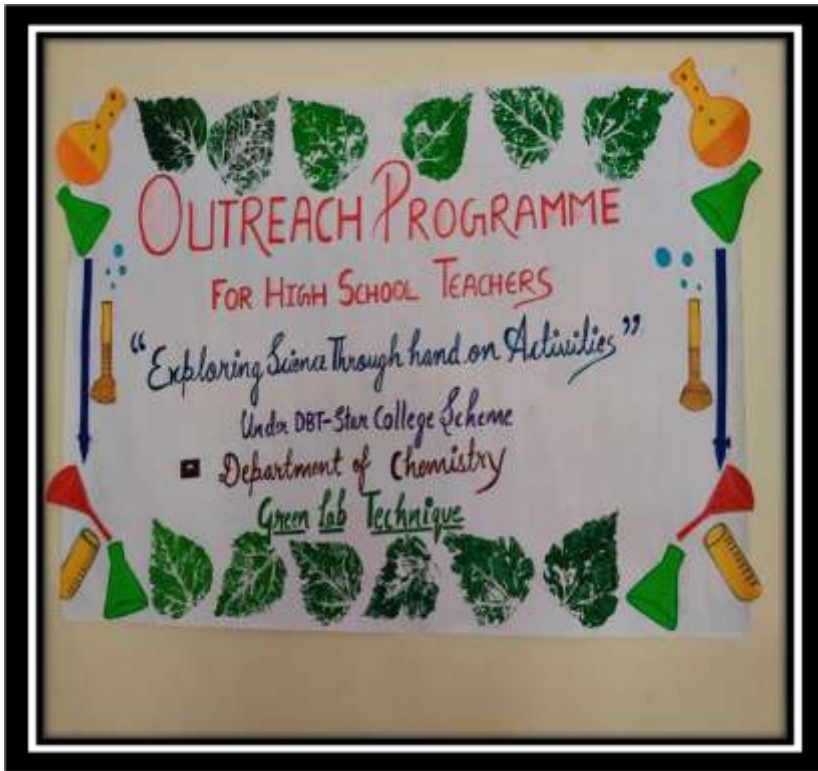 OUTREACH PROGRAMME
FOR HIGH SCHOOL TEACHERS
“Exploring Science Through hand on Activities”
Under DBT-Star College Scheme
Department of Chemistry
Green Lab Technique